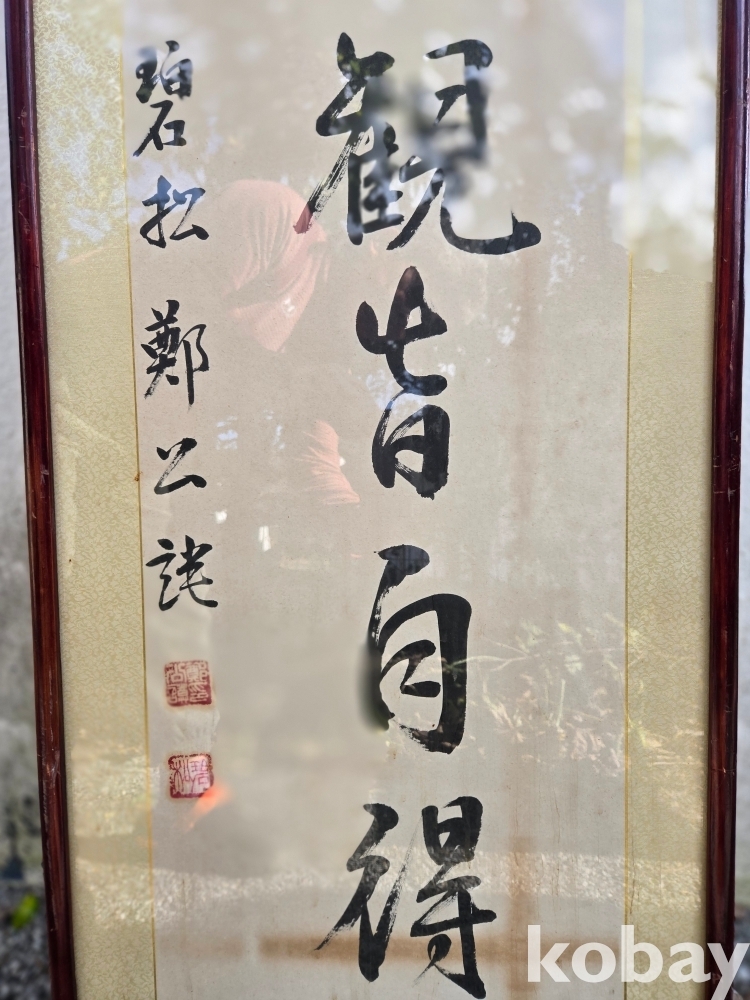 觀皆自得
碧松 鄭公
kobay